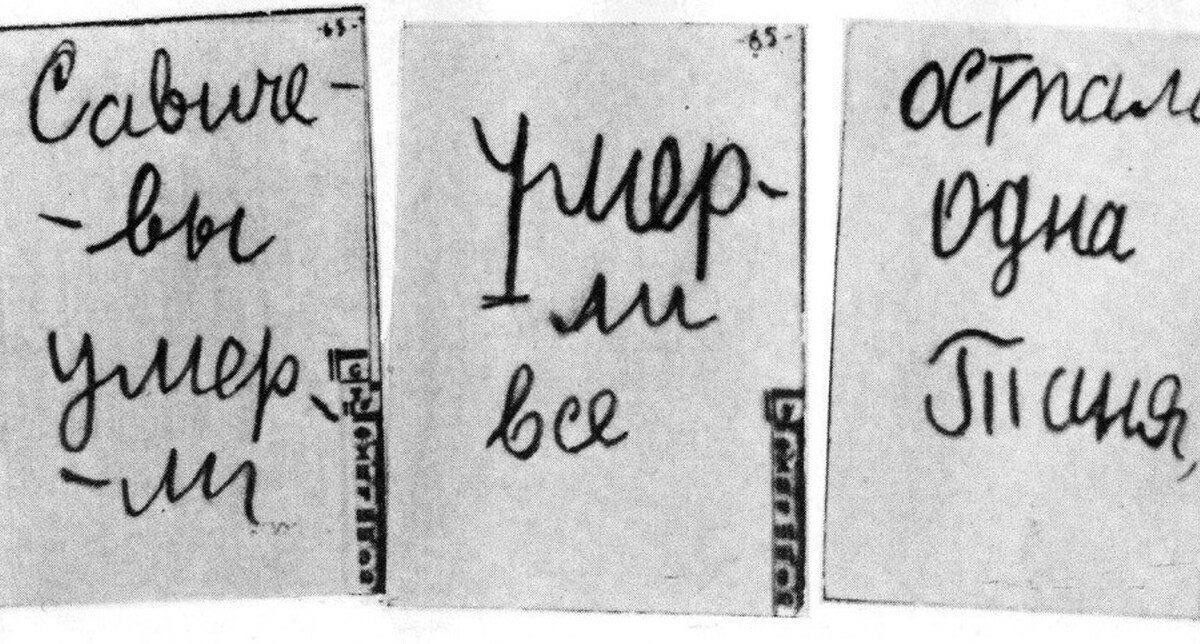 -65-
Савиче-
-вы
умер-
-ли
-65-
Умер-
-ли
все
остал
одна
Таня,